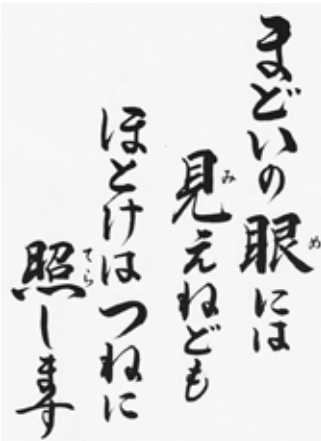 まどいの眼には
見えねども
ほとけはつねに
照します